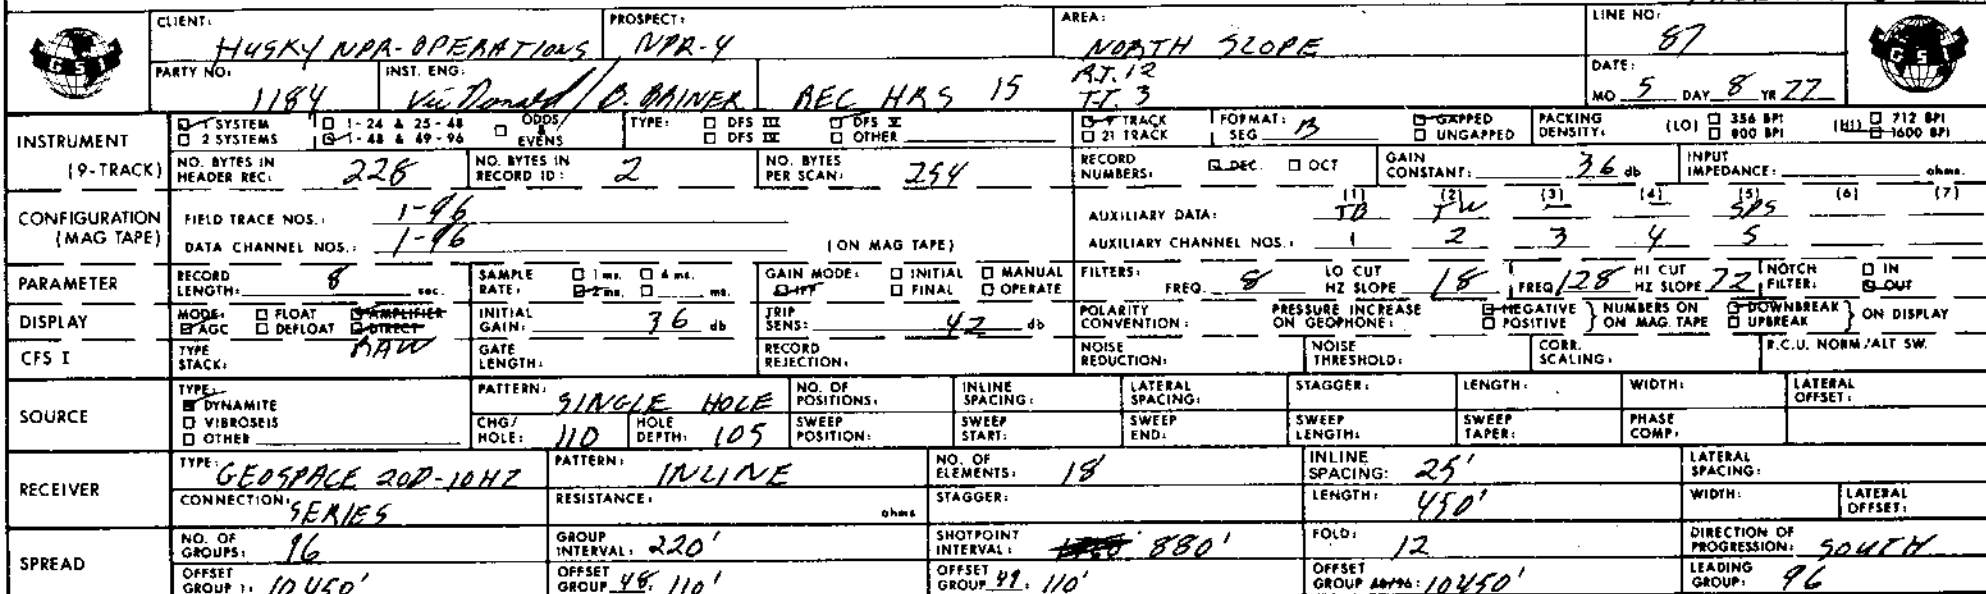 CLIENT: HUSKY NPR-OPERATIONS PROSPECT: NPR-4 AREA: NORTH SLOPE LINE NO: 87
GSI GSI
PARTY NO: 1184 INST. ENG: Vic Donald / B. BAINER REC HRS 15 R.T. 12 T.T. 3 DATE: MO 5 DAY 8 YR 77
INSTRUMENT (9-TRACK)
SYSTEM 1-24 & 25-48 ODDS & EVENS TYPE: DFS III DFS V 9 TRACK FORMAT: SEG B GAPPED PACKING DENSITY: (LO) 356 BPI (HI) 712 BPI
2 SYSTEMS 1-48 & 49-96 DFS IV OTHER 21 TRACK UNGAPPED 800 BPI 1600 BPI
NO. BYTES IN HEADER REC: 228 NO. BYTES IN RECORD ID: 2 NO. BYTES PER SCAN: 254 RECORD NUMBERS: DEC. OCT GAIN CONSTANT: 36 db INPUT IMPEDANCE: ohms.
CONFIGURATION (MAG TAPE)
FIELD TRACE NOS.: 1-96 AUXILIARY DATA: (1) TB (2) TW (3) – (4) – (5) SPS (6) (7)
DATA CHANNEL NOS.: 1-96 (ON MAG TAPE) AUXILIARY CHANNEL NOS.: 1 2 3 4 5
PARAMETER RECORD LENGTH: 8 sec. SAMPLE RATE: 1 ms. 4 ms. 2 ms. ms. GAIN MODE: IFP INITIAL FINAL MANUAL OPERATE FILTERS: FREQ. 8 LO CUT HZ SLOPE 18 FREQ 128 HI CUT HZ SLOPE 72 NOTCH FILTER: IN OUT
DISPLAY MODE: AGC FLOAT DEFLOAT AMPLIFIER DIRECT RAW INITIAL GAIN: 36 db TRIP SENS: 42 db POLARITY CONVENTION: PRESSURE INCREASE ON GEOPHONE: NEGATIVE POSITIVE } NUMBERS ON ON MAG. TAPE DOWNBREAK UPBREAK } ON DISPLAY
CFS I TYPE STACK: GATE LENGTH: RECORD REJECTION: NOISE REDUCTION: NOISE THRESHOLD: CORR. SCALING: R.C.U. NORM/ALT SW.
SOURCE TYPE: DYNAMITE VIBROSEIS OTHER PATTERN: SINGLE HOLE NO. OF POSITIONS: INLINE SPACING: LATERAL SPACING: STAGGER: LENGTH: WIDTH: LATERAL OFFSET:
CHG/HOLE: 110 HOLE DEPTH: 105 SWEEP POSITION: SWEEP START: SWEEP END: SWEEP LENGTH: SWEEP TAPER: PHASE COMP:
RECEIVER TYPE: GEOSPACE 20D-10HZ PATTERN: INLINE NO. OF ELEMENTS: 18 INLINE SPACING: 25' LATERAL SPACING:
CONNECTION: SERIES RESISTANCE: ohms STAGGER: LENGTH: 450' WIDTH: LATERAL OFFSET:
SPREAD NO. OF GROUPS: 96 GROUP INTERVAL: 220' SHOTPOINT INTERVAL: 880' FOLD: 12 DIRECTION OF PROGRESSION: SOUTH
OFFSET GROUP 1: 10450' OFFSET GROUP 48: 110' OFFSET GROUP 49: 110' OFFSET GROUP 48/96: 10450' LEADING GROUP: 96